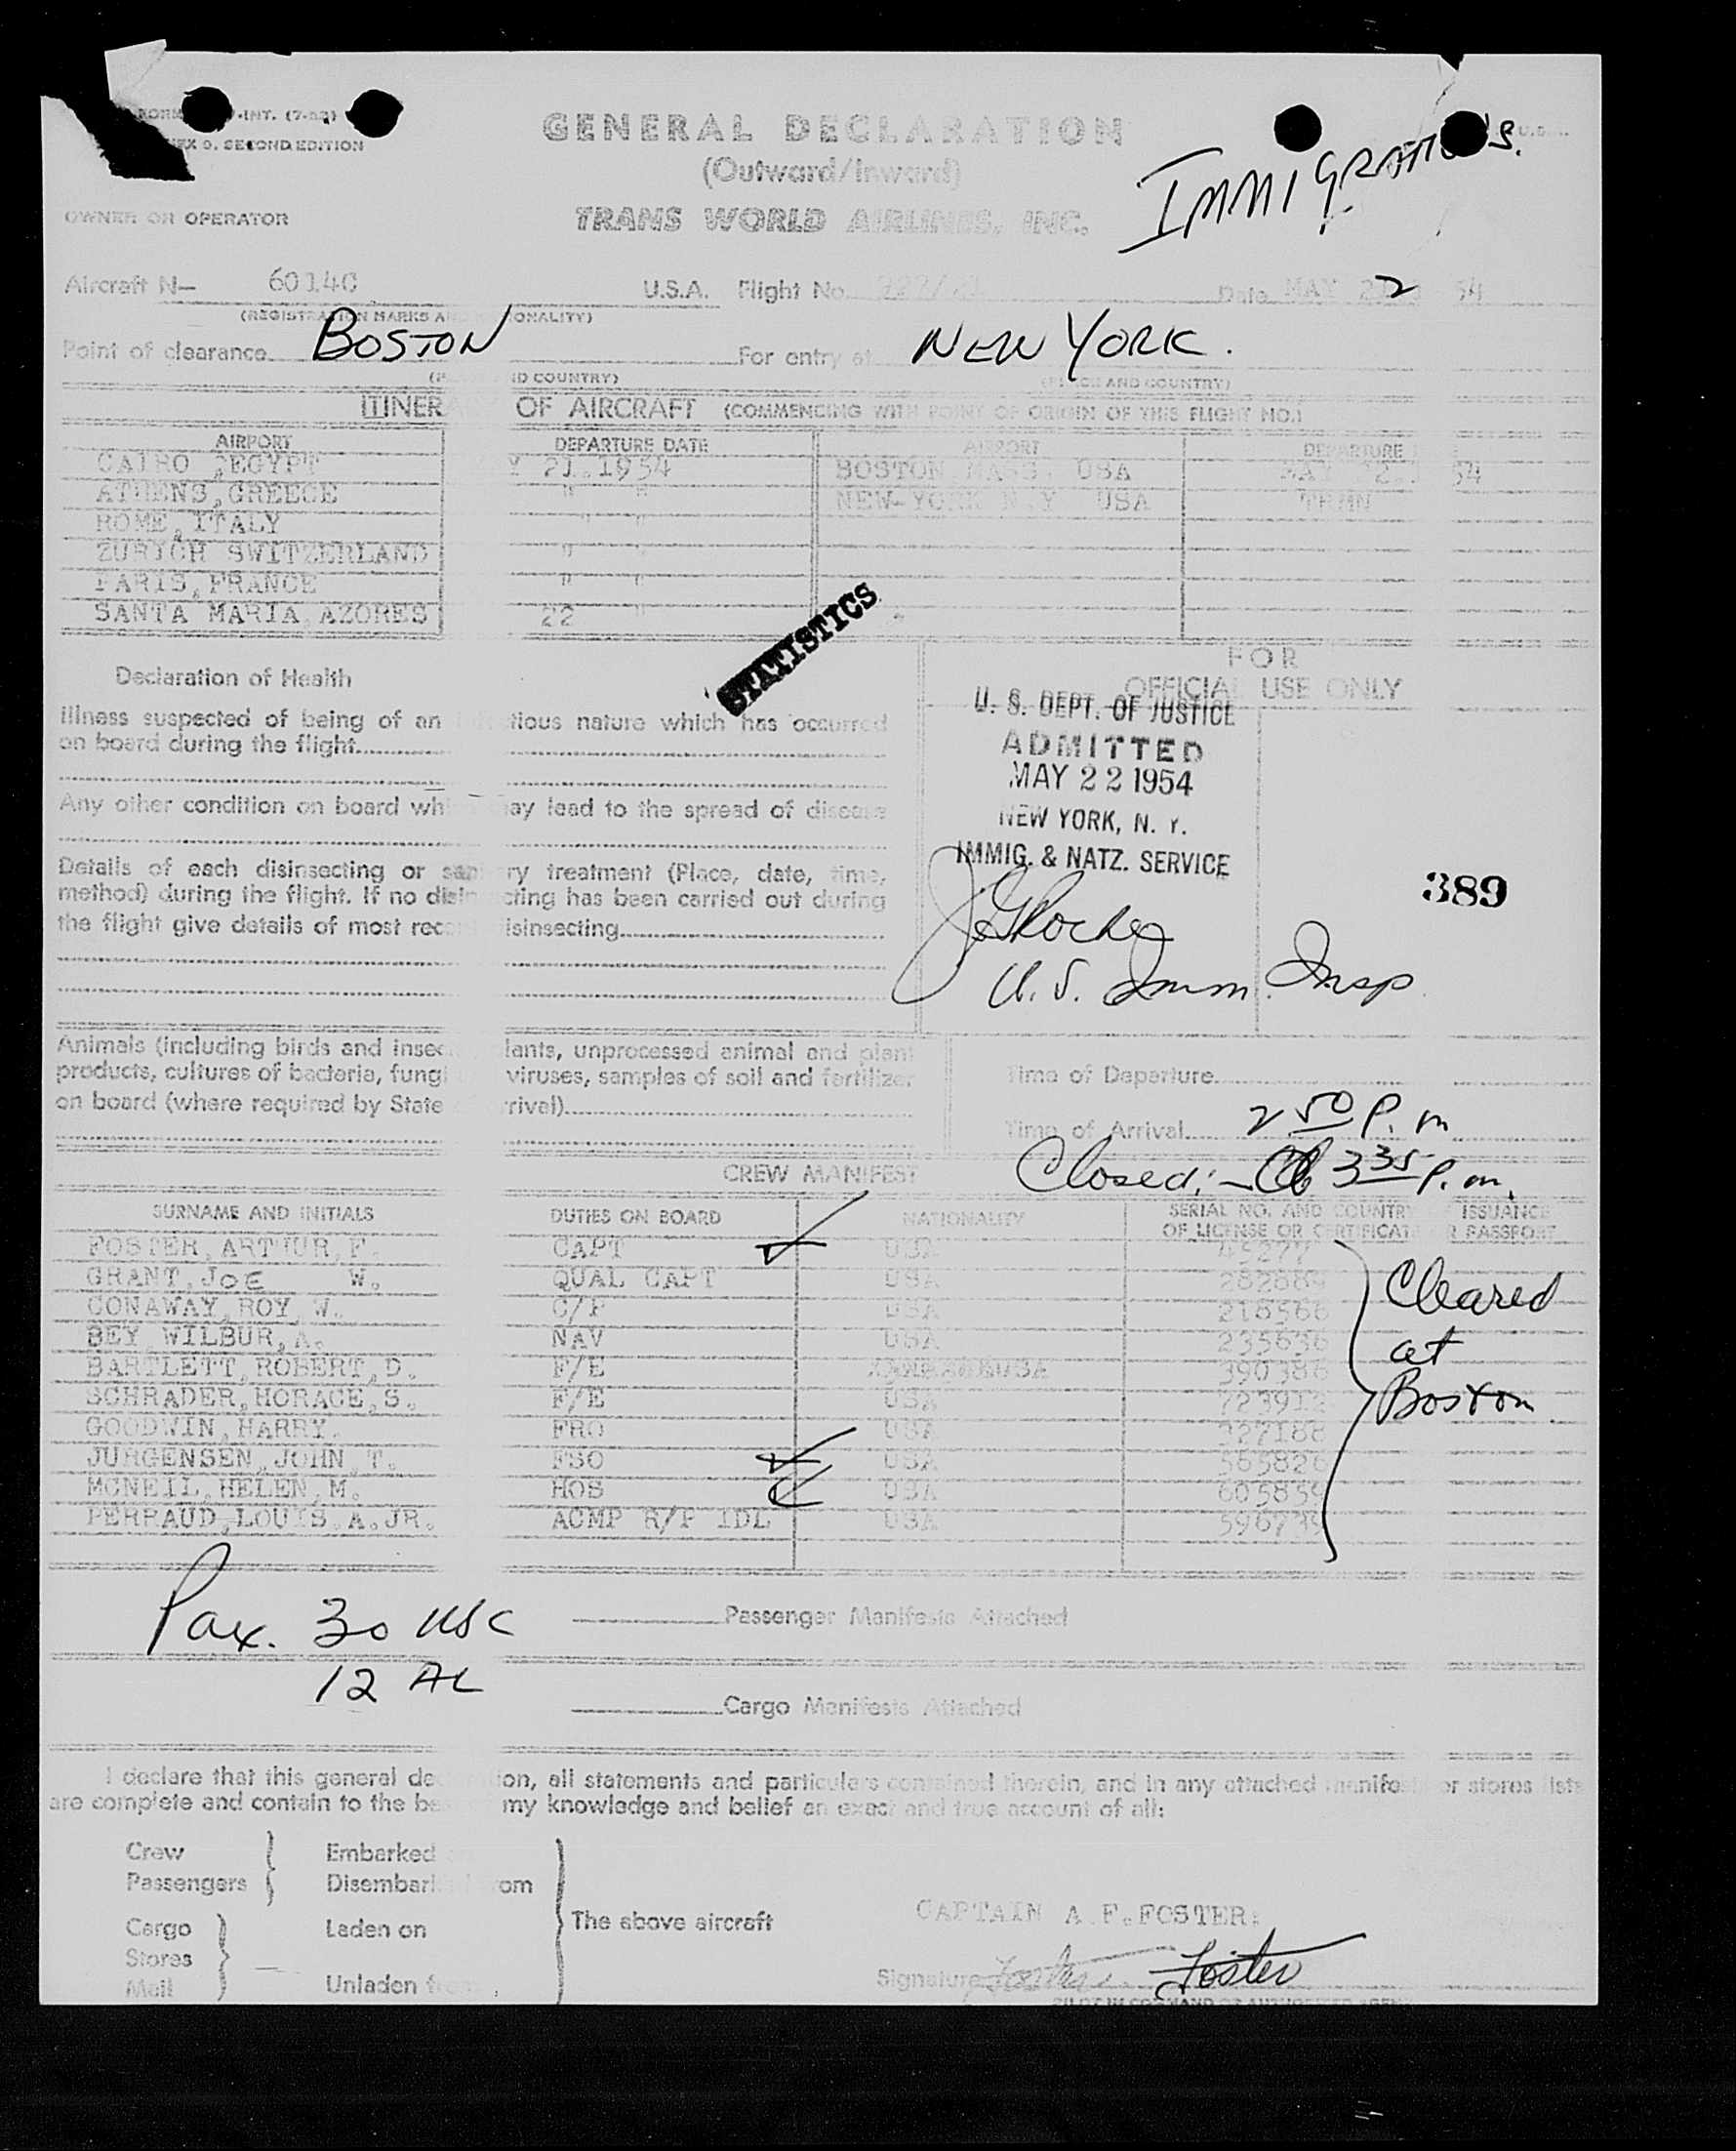 GENERAL DECLARATION
(Outward/Inward)
SECOND EDITION
IMMIGRATION'S.
OWNER OR OPERATOR
TRANS WORLD AIRLINES, INC.
Aircraft N— 6014C U.S.A. Flight No. Date MAY 54
(REGISTRATION MARKS AND NATIONALITY)
Point of clearance BOSTON For entry at NEW YORK.
ID COUNTRY) (PLACE AND COUNTRY)
ITINER OF AIRCRAFT (COMMENCING WITH POINT OF ORIGIN OF THIS FLIGHT NO.)
AIRPORT DEPARTURE DATE AIRPORT DEPARTURE
CAIRO ,EGYPT Y 21.1954 BOSTON MASS USA 54
ATHENS,GREECE " " NEW-YORK N.Y USA
ROME,ITALY " "
ZURICH SWITZERLAND " "
PARIS,FRANCE " "
SANTA MARIA AZORES 22 "
STATISTICS
FOR
OFFICIAL USE ONLY
Declaration of Health
Illness suspected of being of an tious nature which has occurred
on board during the flight
U. S. DEPT. OF JUSTICE
ADMITTED
MAY 22 1954
NEW YORK, N. Y.
IMMIG. & NATZ. SERVICE
389
U.S. Imm. Insp
Any other condition on board wh ay lead to the spread of disease
Details of each disinsecting or san ry treatment (Place, date, time,
method) during the flight. If no disin cting has been carried out during
the flight give details of most rec isinsecting
Animals (including birds and insec lants, unprocessed animal and plant
products, cultures of bacteria, fungi viruses, samples of soil and fertilizer
on board (where required by State rrival)
Time of Departure
Time of Arrival 2 50 P. m
Closed:- 3 35 P. m.
CREW MANIFEST
SURNAME AND INITIALS DUTIES ON BOARD NATIONALITY SERIAL NO. AND COUNTRY ISSUANCE
OF LICENSE OR CERTIFICAT R PASSPORT
FOSTER,ARTHUR,F. CAPT USA
GRANT,JOE W. QUAL CAPT USA
CONAWAY,ROY,W. USA 216566
BEY WILBUR,A. NAV USA 235636
BARTLETT,ROBERT,D. F/E USA 390386
SCHRADER,HORACE,S. F/E USA
GOODWIN,HARRY. FRO USA
JURGENSEN,JOHN,T. FSO USA 565826
MCNEIL,HELEN,M. HOS USA
PERRAUD,LOUIS,A.JR. ACMP R/P IDL USA
Cleared
at
Boston
Pax. 30 USC
12 AL
Passenger Manifests Attached
Cargo Manifests Attached
I declare that this general de ion, all statements and particulars contained therein, and in any attached manifes or stores lists
are complete and contain to the be my knowledge and belief an exact and true account of all:
Crew
Passengers
Embarked
Disembark om
Cargo
Stores
Mail
Laden on
Unladen from
The above aircraft
CAPTAIN A.F.FOSTER
Signature Foster